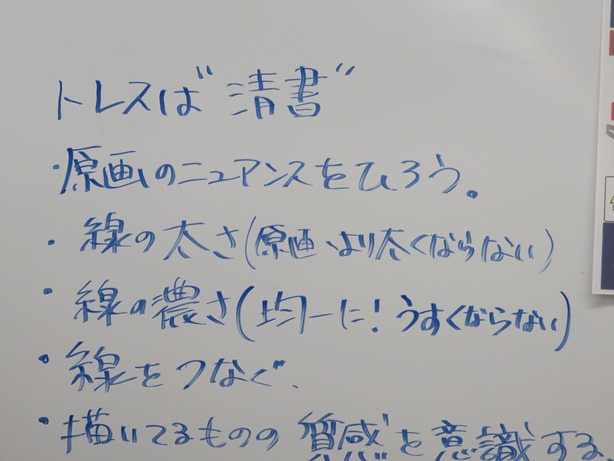 トレスは"清書"
・原画のニュアンスをひろう。
・線の太さ(原画より太くならない)
・線の濃さ(均一に!うすくならない)
・線をつなぐ、
・描いてるものの質感を意識する。